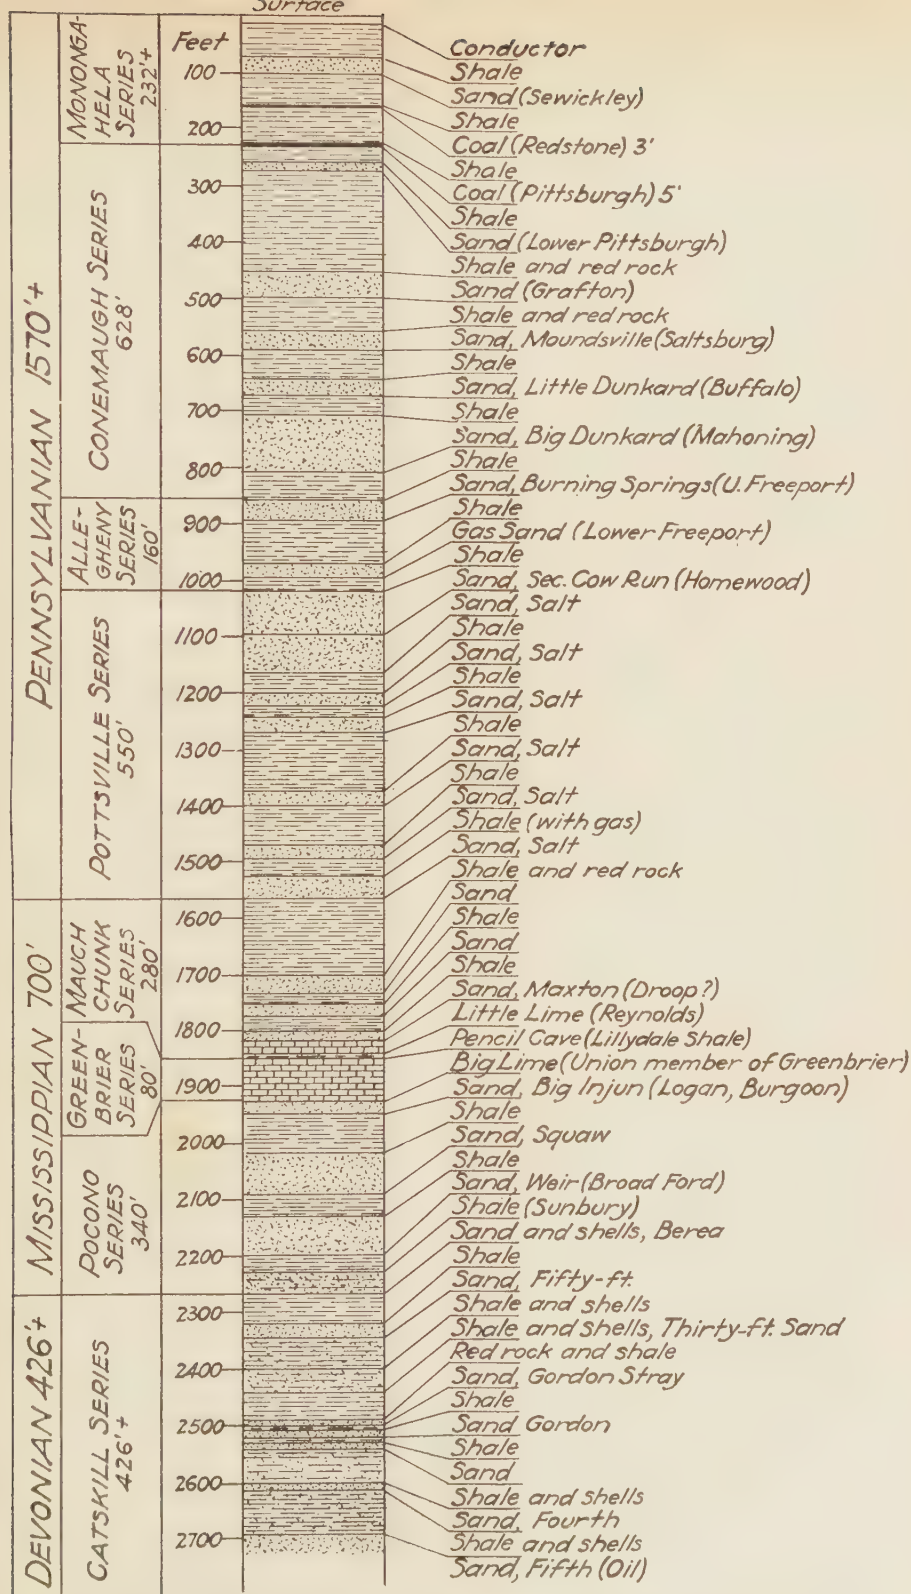 Surface
Feet
100
200
300
400
500
600
700
800
900
1000
1100
1200
1300
1400
1500
1600
1700
1800
1900
2000
2100
2200
2300
2400
2500
2600
2700
PENNSYLVANIAN 1570'+
MISSISSIPPIAN 700'
DEVONIAN 426'+
MONONGA-
HELA
SERIES
232'+
CONEMAUGH SERIES
628'
ALLE-
GHENY
SERIES
160'
POTTSVILLE SERIES
550'
MAUCH
CHUNK
SERIES
280'
GREEN-
BRIER
SERIES
80'
POCONO
SERIES
340'
CATSKILL SERIES
426'+
Conductor
Shale
Sand (Sewickley)
Shale
Coal (Redstone) 3'
Shale
Coal (Pittsburgh) 5'
Shale
Sand (Lower Pittsburgh)
Shale and red rock
Sand (Grafton)
Shale and red rock
Sand, Moundsville (Saltsburg)
Shale
Sand, Little Dunkard (Buffalo)
Shale
Sand, Big Dunkard (Mahoning)
Shale
Sand, Burning Springs (U. Freeport)
Shale
Gas Sand (Lower Freeport)
Shale
Sand, Sec. Cow Run (Homewood)
Sand, Salt
Shale
Sand, Salt
Shale
Sand, Salt
Shale
Sand, Salt
Shale
Sand, Salt
Shale (with gas)
Sand, Salt
Shale and red rock
Sand
Shale
Sand
Shale
Sand, Maxton (Droop ?)
Little Lime (Reynolds)
Pencil Cave (Lillydale Shale)
Big Lime (Union member of Greenbrier)
Sand, Big Injun (Logan, Burgoon)
Shale
Sand, Squaw
Shale
Sand, Weir (Broad Ford)
Shale (Sunbury)
Sand and shells, Berea
Shale
Sand, Fifty-ft.
Shale and shells
Shale and shells, Thirty-ft. Sand
Red rock and shale
Sand, Gordon Stray
Shale
Sand Gordon
Shale
Sand
Shale and shells
Sand, Fourth
Shale and shells
Sand, Fifth (Oil)